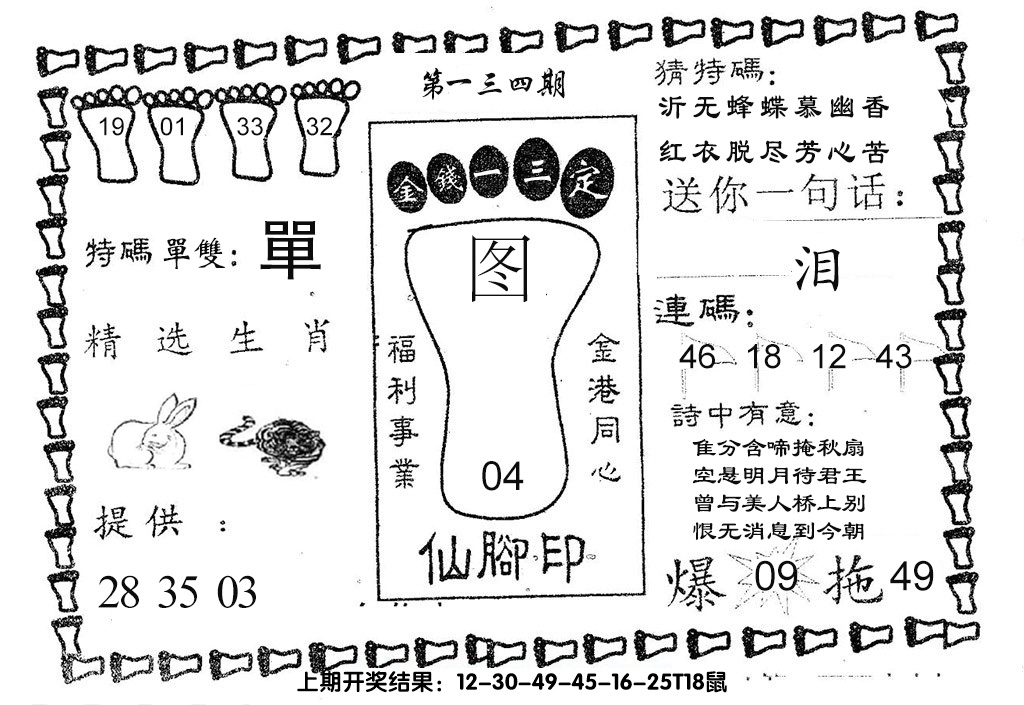 第一三四期
19 01 33 32
特碼單雙：單
精选生肖
提供：
28 35 03
金錢一三定
图
福利事業
金港同心
04
仙腳印
猜特碼：
沂无蜂蝶慕幽香
红衣脱尽芳心苦
送你一句话：
泪
連碼：
46 18 12 43
詩中有意：
隹分含啼掩秋扇
空悬明月待君王
曾与美人桥上别
恨无消息到今朝
爆 09 拖 49
上期开奖结果：12-30-49-45-16-25T18鼠